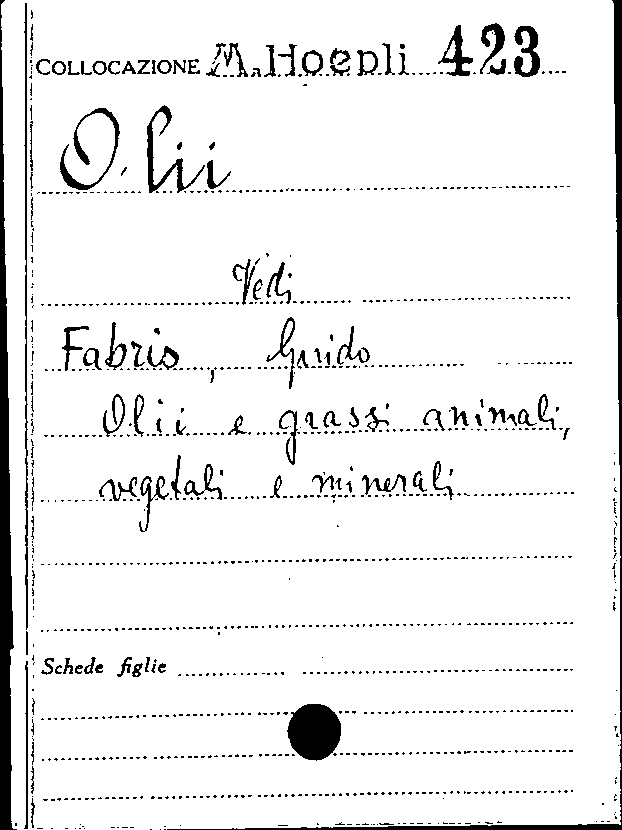 COLLOCAZIONE M. Hoepli 423
Olii
Vedi
Fabris, Guido
Olii e grassi animali,
vegetali e minerali
Schede figlie